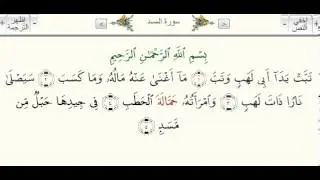 إخفي النص
سورة المسد
إظهر الترجمة
بِسْمِ اللَّهِ الرَّحْمَٰنِ الرَّحِيمِ
تَبَّتْ يَدَآ أَبِى لَهَبٍ وَتَبَّ ١ مَآ أَغْنَىٰ عَنْهُ مَالُهُۥ وَمَا كَسَبَ ٢ سَيَصْلَىٰ
نَارًا ذَاتَ لَهَبٍ ٣ وَٱمْرَأَتُهُۥ حَمَّالَةَ ٱلْحَطَبِ ٤ فِى جِيدِهَا حَبْلٌ مِّن
مَّسَدٍ ٥